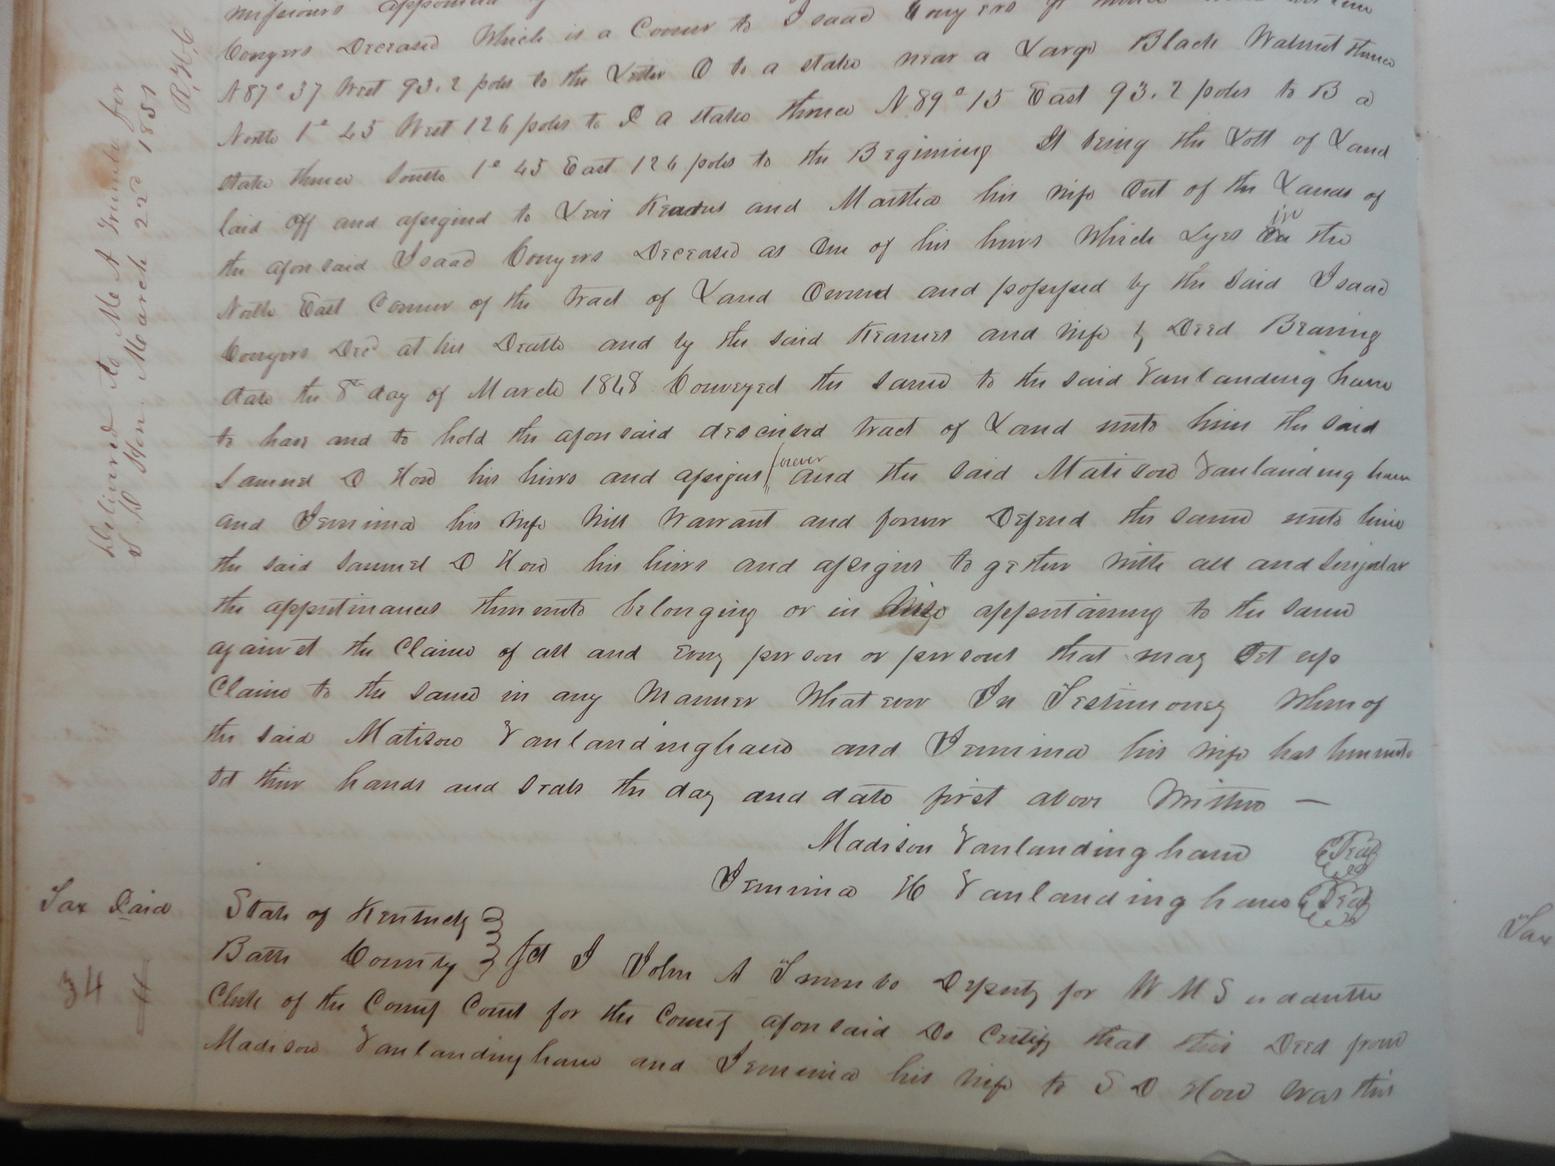 missioners appointed
Congers Deceased Which is a Corner to Isaac Congers
N 87° 37 West 93.2 poles to the Letter O to a stake near a Large Black Walnut thence
North 1° 45 West 126 poles to a stake thence N 89° 15 East 93.2 poles to B a
stake thence South 1° 45 East 126 poles to the Begining It being the Lott of Land
laid off and assigned to Levi and Martha his wife Out of the Lands of
the aforesaid Isaac Congers Deceased as One of his heirs Which Lyes in the
North East Corner of the tract of Land Owned and possessed by the Said Isaac
Congers Decd at his Death and by the said Kearns and wife by Deed Bearing
date the 8th day of March 1848 Conveyed the same to the said Vanlandingham
to have and to hold the aforesaid described tract of Land unto him the said
Samuel D How his heirs and assigns forever and the said Matison Vanlandingham
and Jemima his wife Will Warrant and forever Defend the same unto him
the said Samuel D How his heirs and assigns together with all and Singular
the appurtinances thereunto belonging or in any wise appertaining to the same
against the Claim of all and every person or persons that may Set up
Claim to the same in any Manner Whatever In Testimoney Whereof
the said Matison Vanlandingham and Jemima his wife has hereunto
set their hands and Seals the day and date first above Written —
Madison Vanlandingham Seal
Jemima H Vanlandingham Seal
State of Kentucky
Bath County Sct I John A Trumbo Deputy for W M Sudduth
Clerk of the County Court for the County aforesaid Do Certify that this Deed from
Madison Vanlandingham and Jemima his wife to S D How was this
Delivered to M A Trumbo for
S D How March 22d 1851
Tax Paid
34
Tax